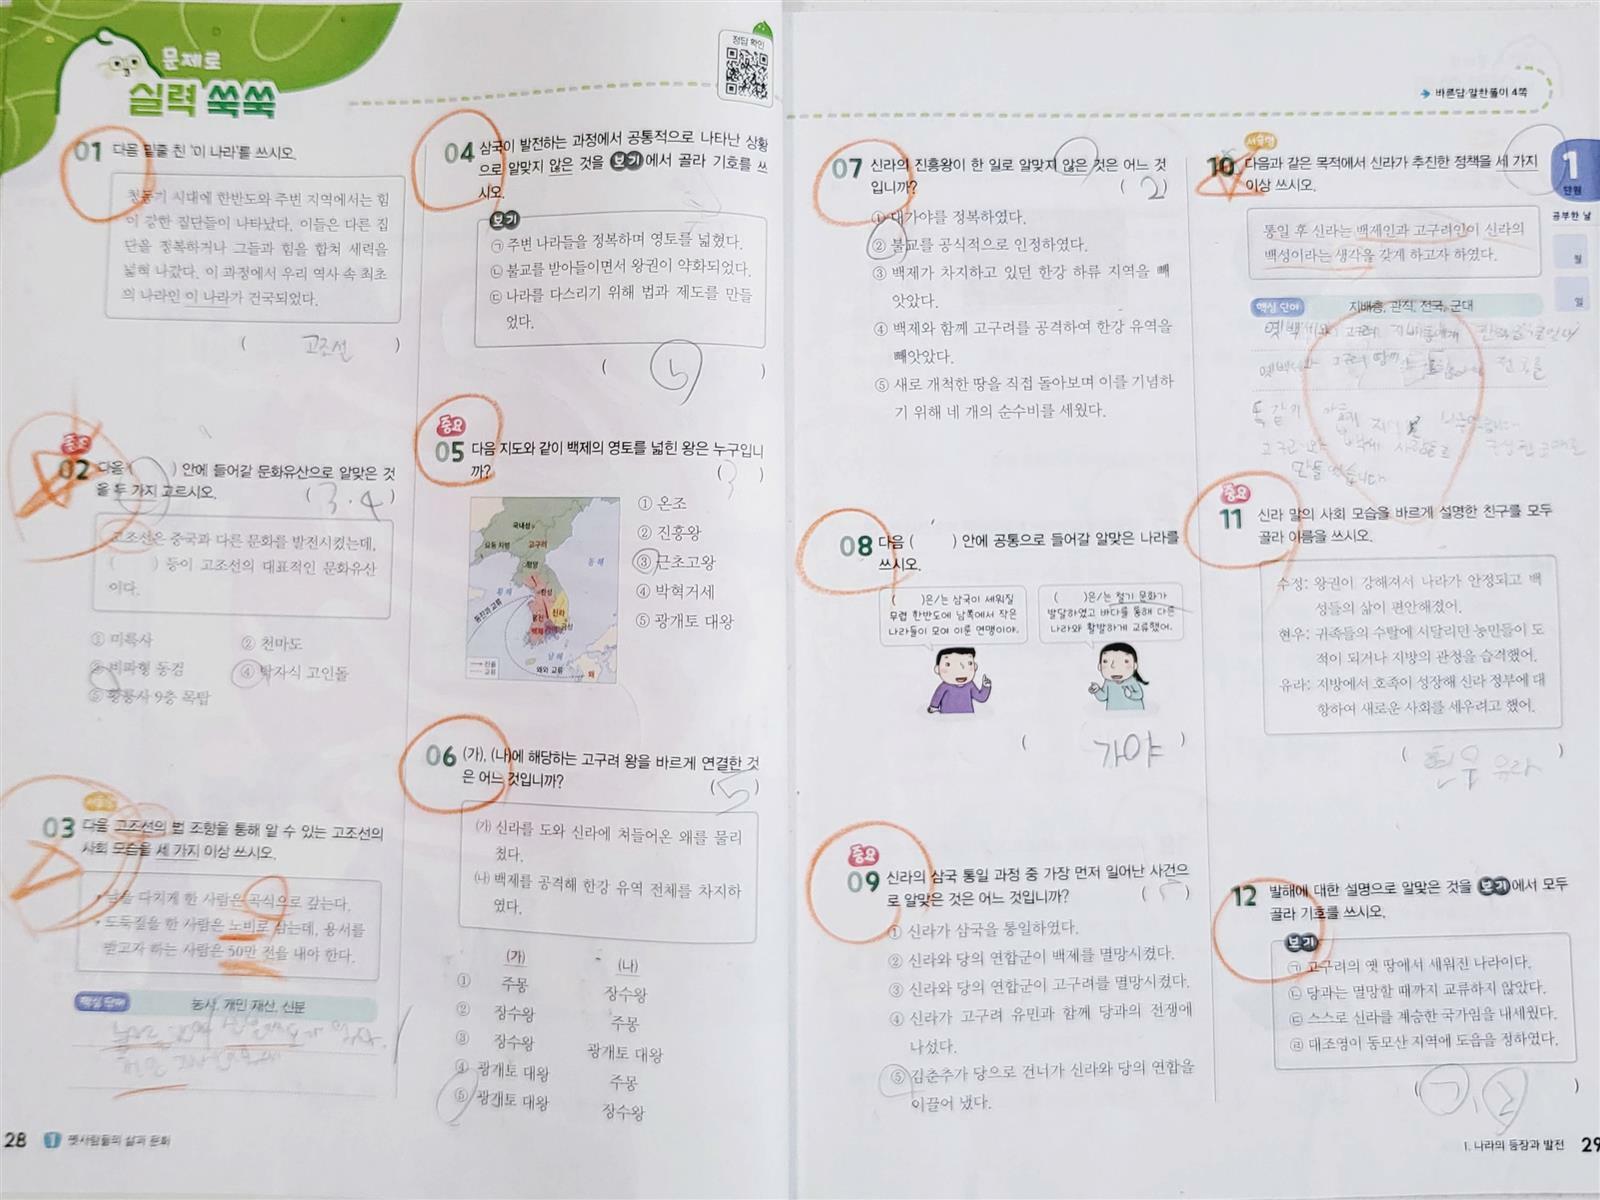 문제로
실력 쑥쑥
정답 확인
01 다음 밑줄 친 '이 나라'를 쓰시오.
청동기 시대에 한반도와 주변 지역에서는 힘
이 강한 집단들이 나타났다. 이들은 다른 집
단을 정복하거나 그들과 힘을 합쳐 세력을
넓혀 나갔다. 이 과정에서 우리 역사 속 최초
의 나라인 이 나라가 건국되었다.
( 고조선 )
중요
02 다음 ( ) 안에 들어갈 문화유산으로 알맞은 것
을 두 가지 고르시오. ( 3.4 )
고조선은 중국과 다른 문화를 발전시켰는데,
( ) 등이 고조선의 대표적인 문화유산
이다.
① 미륵사 ② 천마도
③ 비파형 동검 ④ 탁자식 고인돌
⑤ 황룡사 9층 목탑
서술형
03 다음 고조선의 법 조항을 통해 알 수 있는 고조선의
사회 모습을 세 가지 이상 쓰시오.
• 남을 다치게 한 사람은 곡식으로 갚는다.
• 도둑질을 한 사람은 노비로 삼는데, 용서를
받고자 하는 사람은 50만 전을 내야 한다.
핵심 단어 농사, 개인 재산, 신분
28 1 옛사람들의 삶과 문화
04 삼국이 발전하는 과정에서 공통적으로 나타난 상황
으로 알맞지 않은 것을 보기 에서 골라 기호를 쓰
시오.
보기
㉠ 주변 나라들을 정복하며 영토를 넓혔다.
㉡ 불교를 받아들이면서 왕권이 약화되었다.
㉢ 나라를 다스리기 위해 법과 제도를 만들
었다.
( ㄴ )
중요
05 다음 지도와 같이 백제의 영토를 넓힌 왕은 누구입니
까? ( 3 )
국내성
요동 지방 고구려
평양
동해
황해 한성
신라
웅진 금성
백제 가야
동진과 교류
남해
왜와 교류 왜
진출
교류
① 온조
② 진흥왕
③ 근초고왕
④ 박혁거세
⑤ 광개토 대왕
06 (가), (나)에 해당하는 고구려 왕을 바르게 연결한 것
은 어느 것입니까? (5)
(가) 신라를 도와 신라에 쳐들어온 왜를 물리
쳤다.
(나) 백제를 공격해 한강 유역 전체를 차지하
였다.
(가) (나)
① 주몽 장수왕
② 장수왕 주몽
③ 장수왕 광개토 대왕
④ 광개토 대왕 주몽
⑤ 광개토 대왕 장수왕
07 신라의 진흥왕이 한 일로 알맞지 않은 것은 어느 것
입니까? ( 2 )
① 대가야를 정복하였다.
② 불교를 공식적으로 인정하였다.
③ 백제가 차지하고 있던 한강 하류 지역을 빼
앗았다.
④ 백제와 함께 고구려를 공격하여 한강 유역을
빼앗았다.
⑤ 새로 개척한 땅을 직접 돌아보며 이를 기념하
기 위해 네 개의 순수비를 세웠다.
08 다음 ( ) 안에 공통으로 들어갈 알맞은 나라를
쓰시오.
( )은/는 삼국이 세워질
무렵 한반도에 남쪽에서 작은
나라들이 모여 이룬 연맹이야.
( )은/는 철기 문화가
발달하였고 바다를 통해 다른
나라와 활발하게 교류했어.
( 가야 )
중요
09 신라의 삼국 통일 과정 중 가장 먼저 일어난 사건으
로 알맞은 것은 어느 것입니까? ( 5 )
① 신라가 삼국을 통일하였다.
② 신라와 당의 연합군이 백제를 멸망시켰다.
③ 신라와 당의 연합군이 고구려를 멸망시켰다.
④ 신라가 고구려 유민과 함께 당과의 전쟁에
나섰다.
⑤ 김춘추가 당으로 건너가 신라와 당의 연합을
이끌어 냈다.
바른답·알찬풀이 4쪽
1
단원
공부한 날
월
일
서술형
10 다음과 같은 목적에서 신라가 추진한 정책을 세 가지
이상 쓰시오.
통일 후 신라는 백제인과 고구려인이 신라의
백성이라는 생각을 갖게 하고자 하였다.
핵심 단어 지배층, 관직, 전국, 군대
만들었습니다
중요
11 신라 말의 사회 모습을 바르게 설명한 친구를 모두
골라 이름을 쓰시오.
수정: 왕권이 강해져서 나라가 안정되고 백
성들의 삶이 편안해졌어.
현우: 귀족들의 수탈에 시달리던 농민들이 도
적이 되거나 지방의 관청을 습격했어.
유라: 지방에서 호족이 성장해 신라 정부에 대
항하여 새로운 사회를 세우려고 했어.
( 현우 유라 )
12 발해에 대한 설명으로 알맞은 것을 보기 에서 모두
골라 기호를 쓰시오.
보기
㉠ 고구려의 옛 땅에서 세워진 나라이다.
㉡ 당과는 멸망할 때까지 교류하지 않았다.
㉢ 스스로 신라를 계승한 국가임을 내세웠다.
㉣ 대조영이 동모산 지역에 도읍을 정하였다.
( ㄱ, ㄹ )
1. 나라의 등장과 발전 29